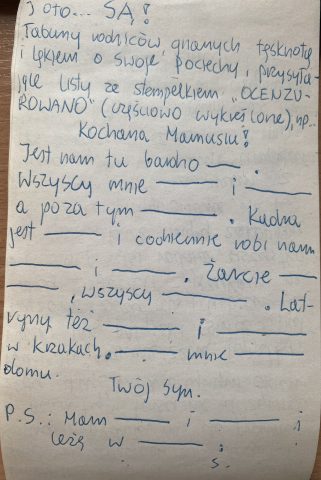 I oto... SĄ!
Tabuny rodziców, gnanych tęsknotą
i lękiem o swoje pociechy, przysyła-
jące listy ze stempelkiem „OCENZU-
ROWANO" (częściowo wykreślone), np...
Kochana Mamusiu!
Jest nam tu bardzo ——.
Wszyscy mnie —— i ——
a poza tym ——. Kadra
jest —— i codziennie robi nam
—— i ——. Żarcie ——
——, wszyscy ——. Lat-
ryny też —— i ——
w krzakach. —— mnie ——
domu.
Twój syn.
P.S.: Mam —— i ——
leżę w ——